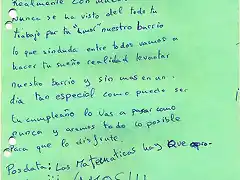 Realmente con
Nunca se ha visto del todo tu
trabajo por tu "humor" nuestro barrio
lo que sin duda entre todos vamos a
hacer tu sueño realidad levantar
nuestro barrio y sin mas en un
día tan especial como puede ser
tu cumpleaños lo vas a pasar como
nunca y aremos todo lo posible
para que lo disfrute.
Posdata: Las Matematicas hay que apro-